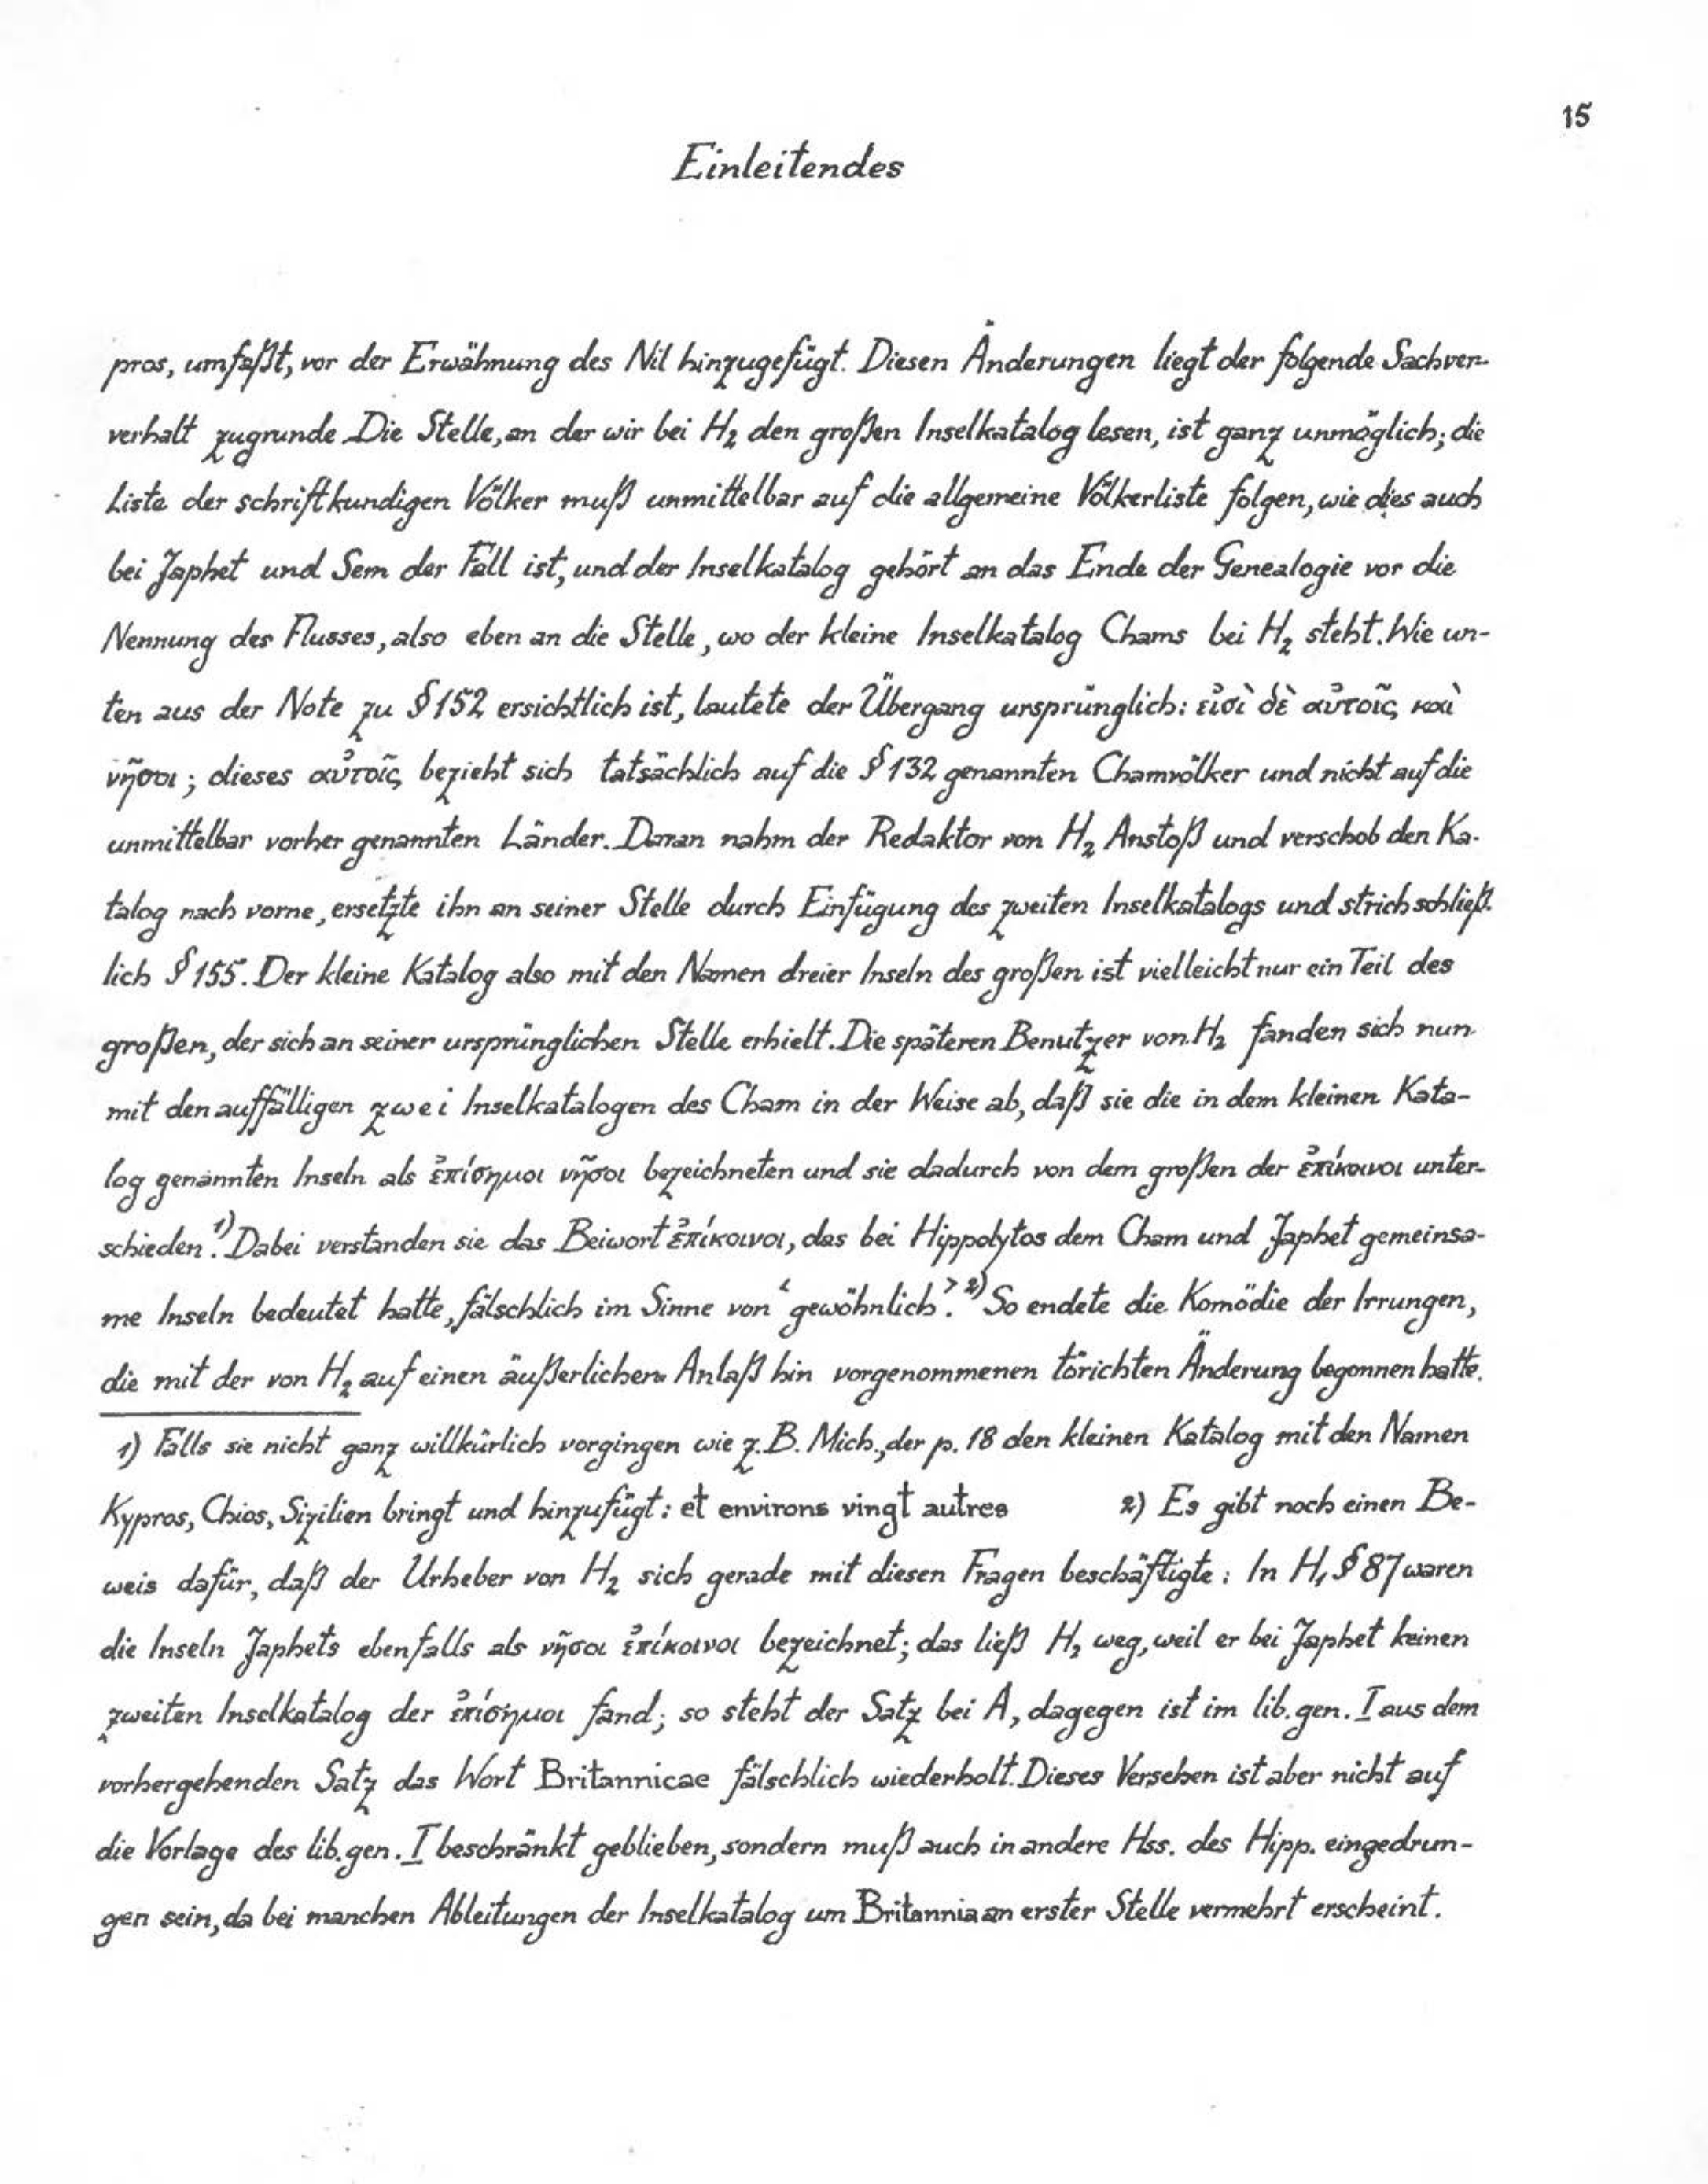 15
Einleitendes
pros, umfaßt, vor der Erwähnung des Nil hinzugefügt. Diesen Änderungen liegt der folgende Sachver-
verhalt zugrunde. Die Stelle, an der wir bei H₂ den großen Inselkatalog lesen, ist ganz unmöglich; die
Liste der schriftkundigen Völker muß unmittelbar auf die allgemeine Völkerliste folgen, wie dies auch
bei Japhet und Sem der Fall ist, und der Inselkatalog gehört an das Ende der Genealogie vor die
Nennung des Flusses, also eben an die Stelle, wo der kleine Inselkatalog Chams bei H₂ steht. Wie un-
ten aus der Note zu § 152 ersichtlich ist, lautete der Übergang ursprünglich: εἰσὶ δὲ αὐτοῖς καὶ
νῆσοι; dieses αὐτοῖς bezieht sich tatsächlich auf die § 132 genannten Chamvölker und nicht auf die
unmittelbar vorher genannten Länder. Daran nahm der Redaktor von H₂ Anstoß und verschob den Ka-
talog nach vorne, ersetzte ihn an seiner Stelle durch Einfügung des zweiten Inselkatalogs und strich schließ-
lich § 155. Der kleine Katalog also mit den Namen dreier Inseln des großen ist vielleicht nur ein Teil des
großen, der sich an seiner ursprünglichen Stelle erhielt. Die späteren Benutzer von H₂ fanden sich nun
mit den auffälligen zwei Inselkatalogen des Cham in der Weise ab, daß sie die in dem kleinen Kata-
log genannten Inseln als ἐπίσημοι νῆσοι bezeichneten und sie dadurch von dem großen der ἐπίκοινοι unter-
schieden.¹) Dabei verstanden sie das Beiwort ἐπίκοινοι, das bei Hippolytos dem Cham und Japhet gemeinsa-
me Inseln bedeutet hatte, fälschlich im Sinne von ‘gewöhnlich’.²) So endete die Komödie der Irrungen,
die mit der von H₂ auf einen äußerlichen Anlaß hin vorgenommenen törichten Änderung begonnen hatte.
1) Falls sie nicht ganz willkürlich vorgingen wie z.B. Mich., der p. 18 den kleinen Katalog mit den Namen
Kypros, Chios, Sizilien bringt und hinzufügt: et environs vingt autres 2) Es gibt noch einen Be-
weis dafür, daß der Urheber von H₂ sich gerade mit diesen Fragen beschäftigte: In H₁ § 87 waren
die Inseln Japhets ebenfalls als νῆσοι ἐπίκοινοι bezeichnet; das ließ H₂ weg, weil er bei Japhet keinen
zweiten Inselkatalog der ἐπίσημοι fand; so steht der Satz bei A, dagegen ist im lib. gen. I aus dem
vorhergehenden Satz das Wort Britannicae fälschlich wiederholt. Dieses Versehen ist aber nicht auf
die Vorlage des lib. gen. I beschränkt geblieben, sondern muß auch in andere Hss. des Hipp. eingedrun-
gen sein, da bei manchen Ableitungen der Inselkatalog um Britannia an erster Stelle vermehrt erscheint.